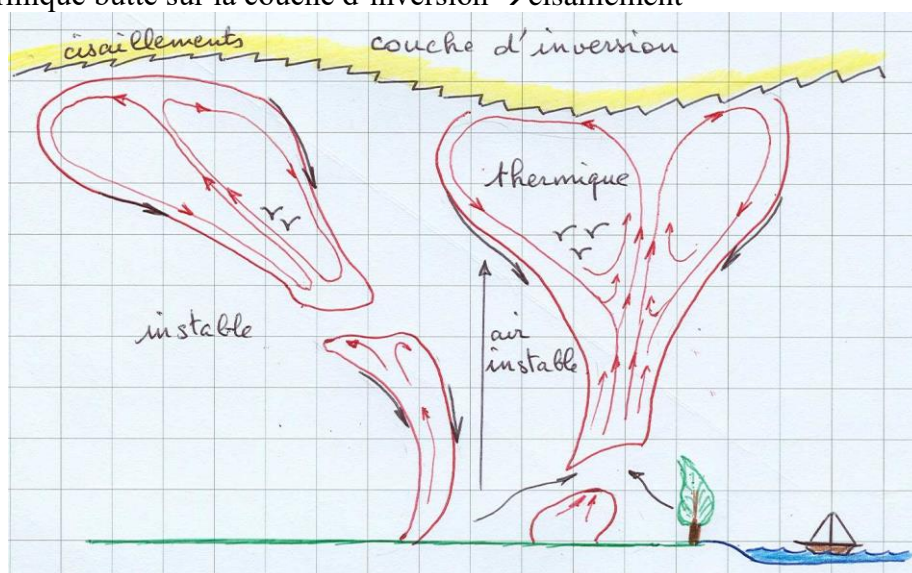 rmique butte sur la couche d'inversion → cisaillement
cisaillements couche d'inversion
thermique
instable
air
instable